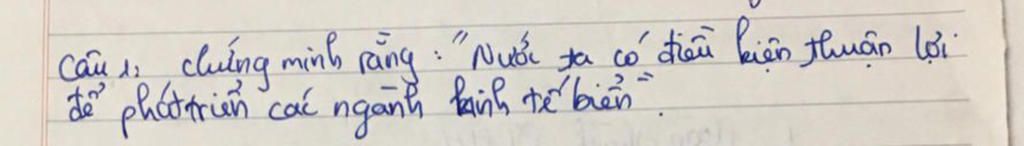 Câu 1: chứng minh rằng: "Nước ta có điều kiện thuận lợi
để phát triển các ngành kinh tế biển".